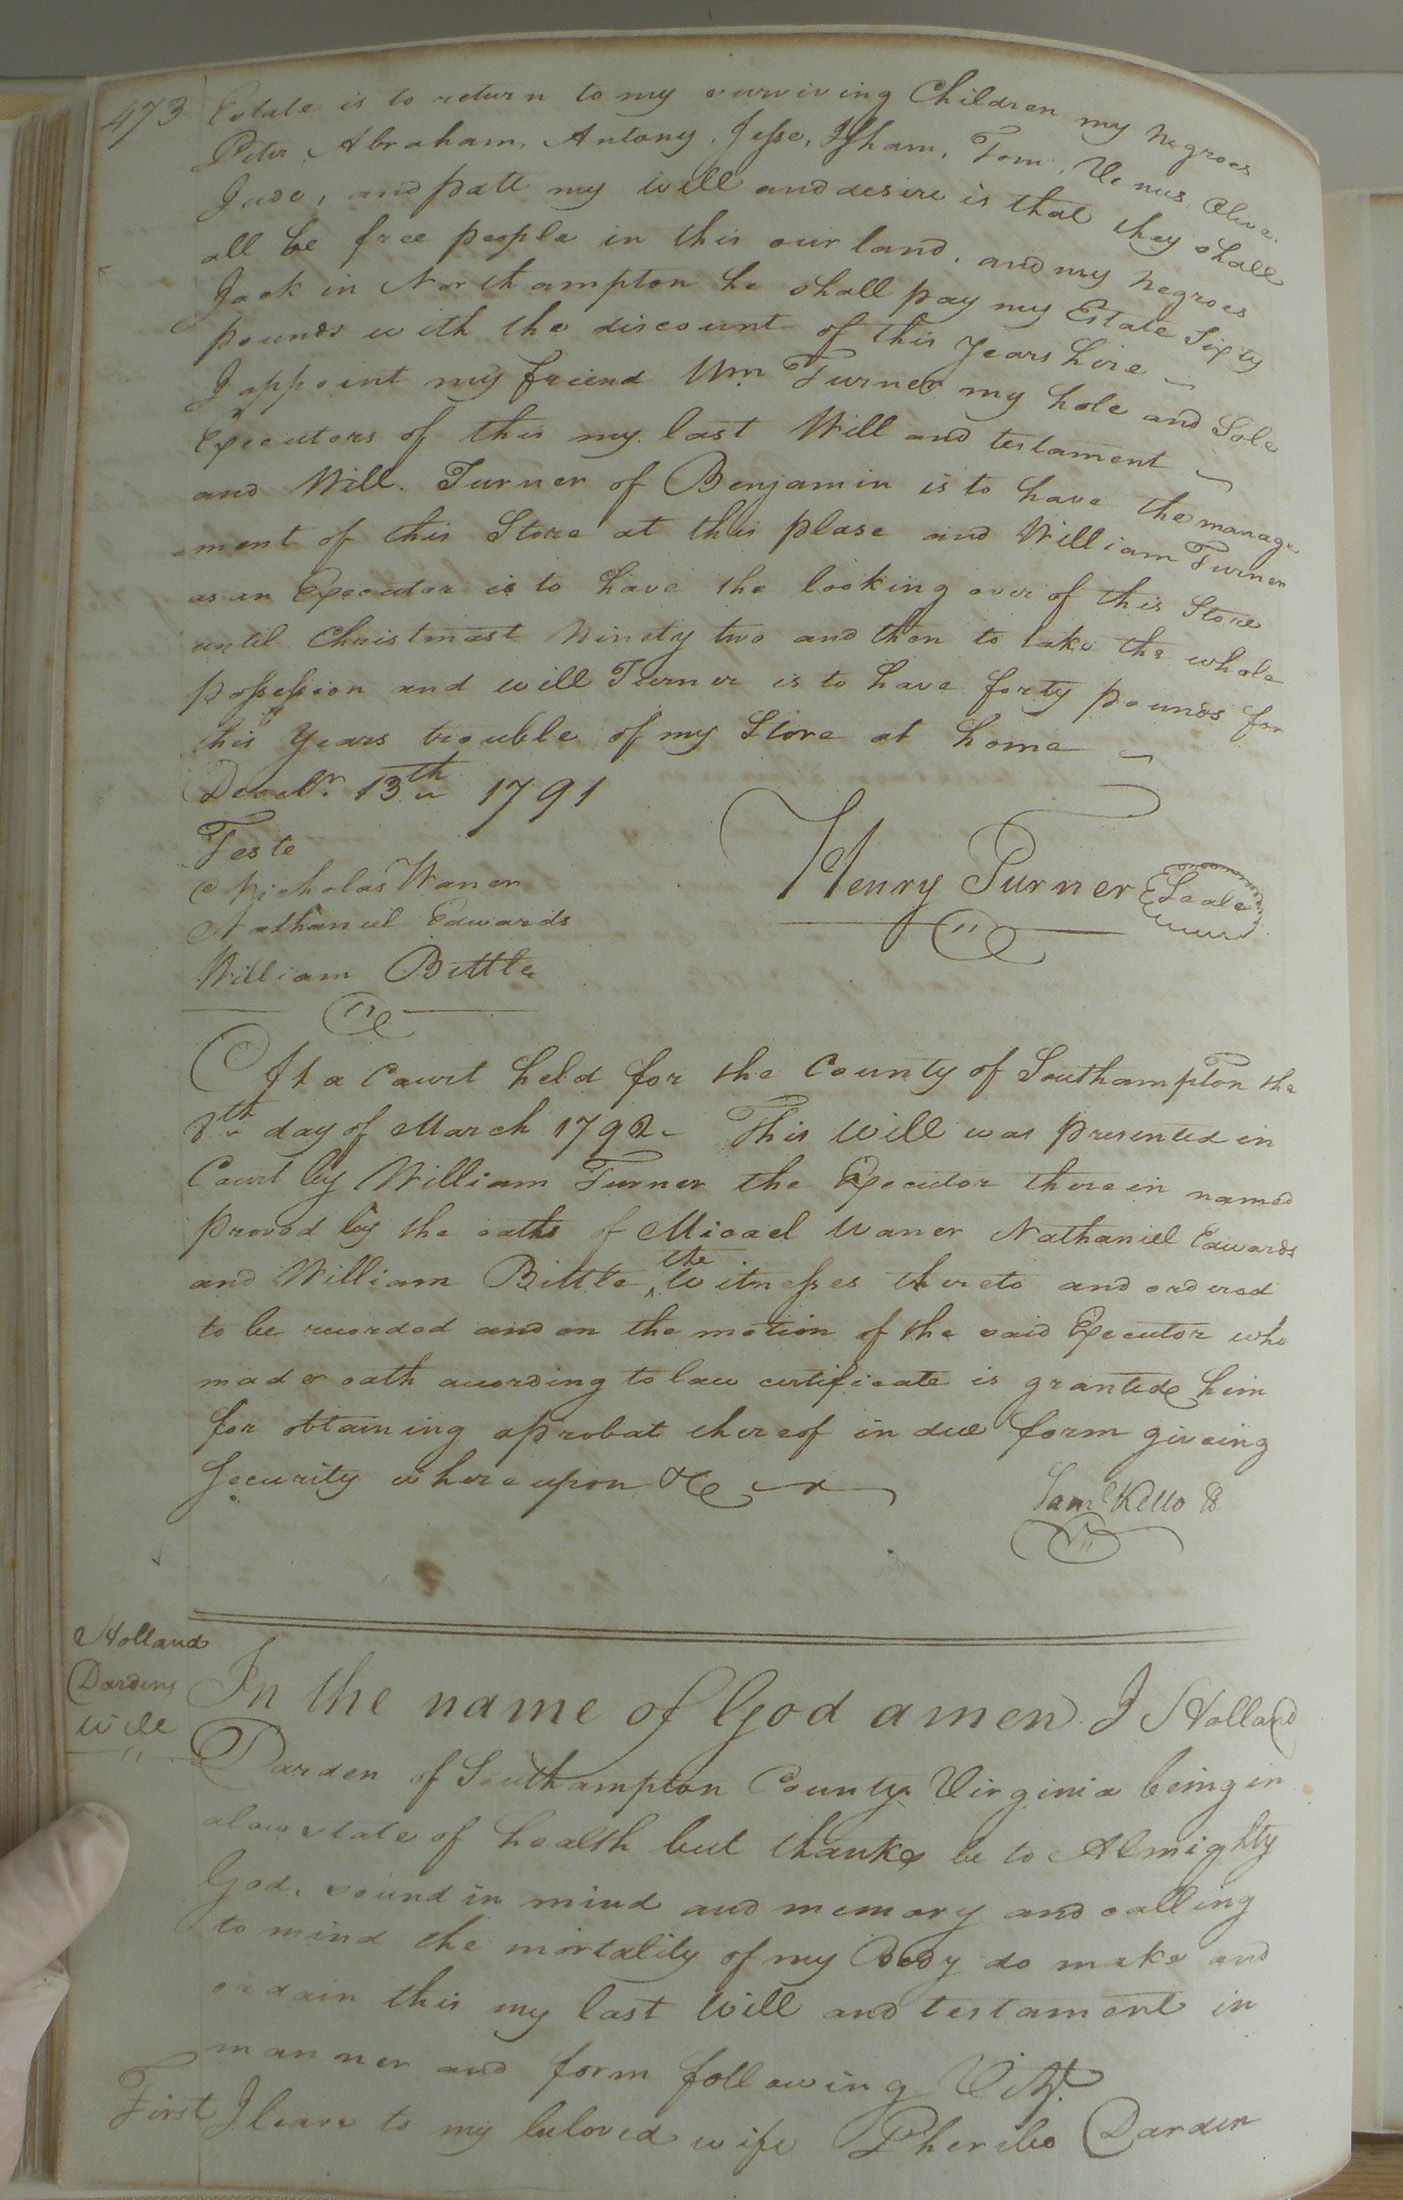 473
Estate is to return to my surviving Children my Negroes
Peter, Abraham, Antony, Jesse, Isham, Tom, Venus, Clue.
Jude, and patt my will and desire is that they shall
all be free people in this our land, and my Negroes
Jack in Northampton he shall pay my Estate Sixty
pounds with the discount of this years hire
I appoint my friend Wm Turner my hole and Sole
Executors of this my last Will and testament
and Will. Turner of Benjamin is to have the manage
-ment of this Store at this plase and William Turner
as an Executor is to have the looking over of this Store
until Christmast Ninety two and then to take the whole
possession and will Turner is to have forty pounds for
this Years trouble of my Store at home
Decebr. 13th 1791
Teste
Nicholas Waner
Nathaniel Edwards
William Bittle
Henry Turner Seale
At a Court held for the County of Southampton the
8th day of March 1792 - This Will was presented in
Court by William Turner the Executor therein named
proved by the oaths of Micael Waner Nathaniel Edwards
and William Bittle, the Witnesses thereto and ordered
to be recorded and on the motion of the said Executor who
made oath according to law certificate is granted him
for obtaining a probat thereof in due form giveing
Security whereupon &c
Saml Kello
Holland
Dardens
Will
In the name of God amen. I Holland
Darden of Southampton County Virginia being in
a low state of health but thanks be to Almighty
God, sound in mind and memory and calling
to mind the mortality of my Body do make and
ordain this my last Will and testament in
manner and form following Vizt.
First I leave to my beloved wife Pheribe Darden